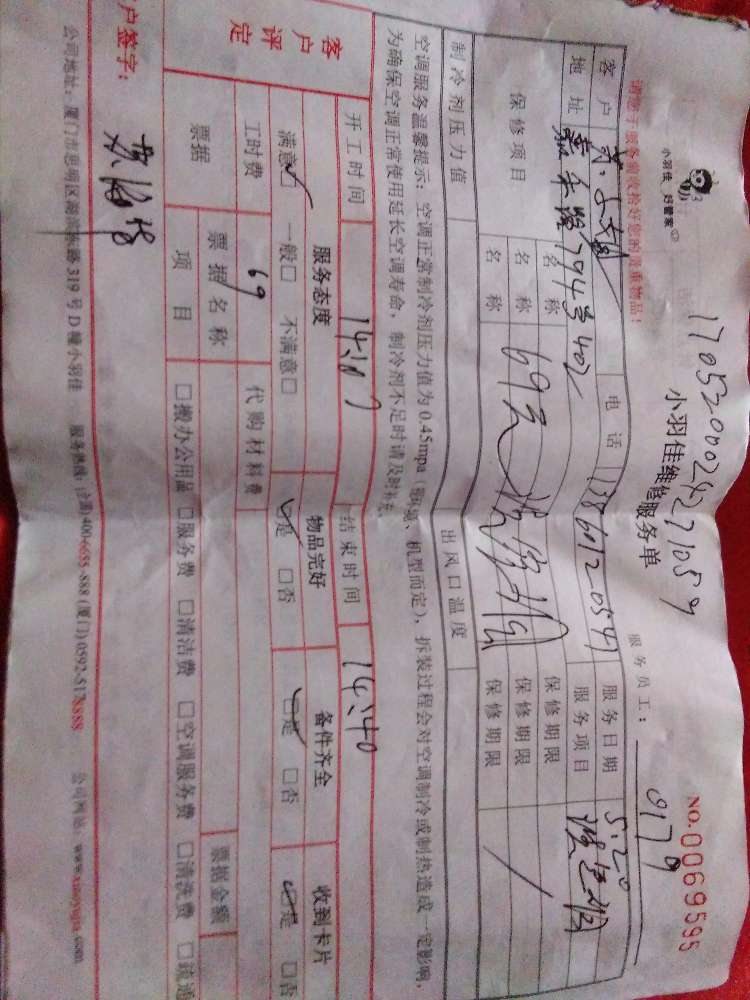 小羽佳 好管家
1705200024271059
小羽佳维修服务单
NO.0069595
请您于服务前收拾好您的贵重物品!
服务员工: 0179
客户 电话 服务日期 5.20
地址 嘉禾路794号402 服务项目
保修项目 名称 保修期限
名称 69元 保修期限
名称 保修期限
制冷剂压力值 出风口温度
空调服务温馨提示:空调正常制冷剂压力值为0.45mpa(视环境、机型而定),拆装过程会对空调制冷或制热造成一定影响,
为确保空调正常使用延长空调寿命,制冷剂不足时请及时补充。
开工时间 14:07 结束时间 14:40
客户评定 服务态度 物品完好 备件齐全 收到卡片
满意□ 一般□ 不满意□ □是 □否 □是 □否 □是 □否
工时费 69 代购材料费
票据 票据名称 票据金额
项目 □搬办公用品 □服务费 □清洁费 □空调服务费 □清洗费 □疏通
户签字:
公司地址:厦门市思明区湖滨 路319号D幢小羽佳 服务热线:(全国)400-6655-888 (厦门)0592-5178888 公司网站:www.xiaoyujia.com